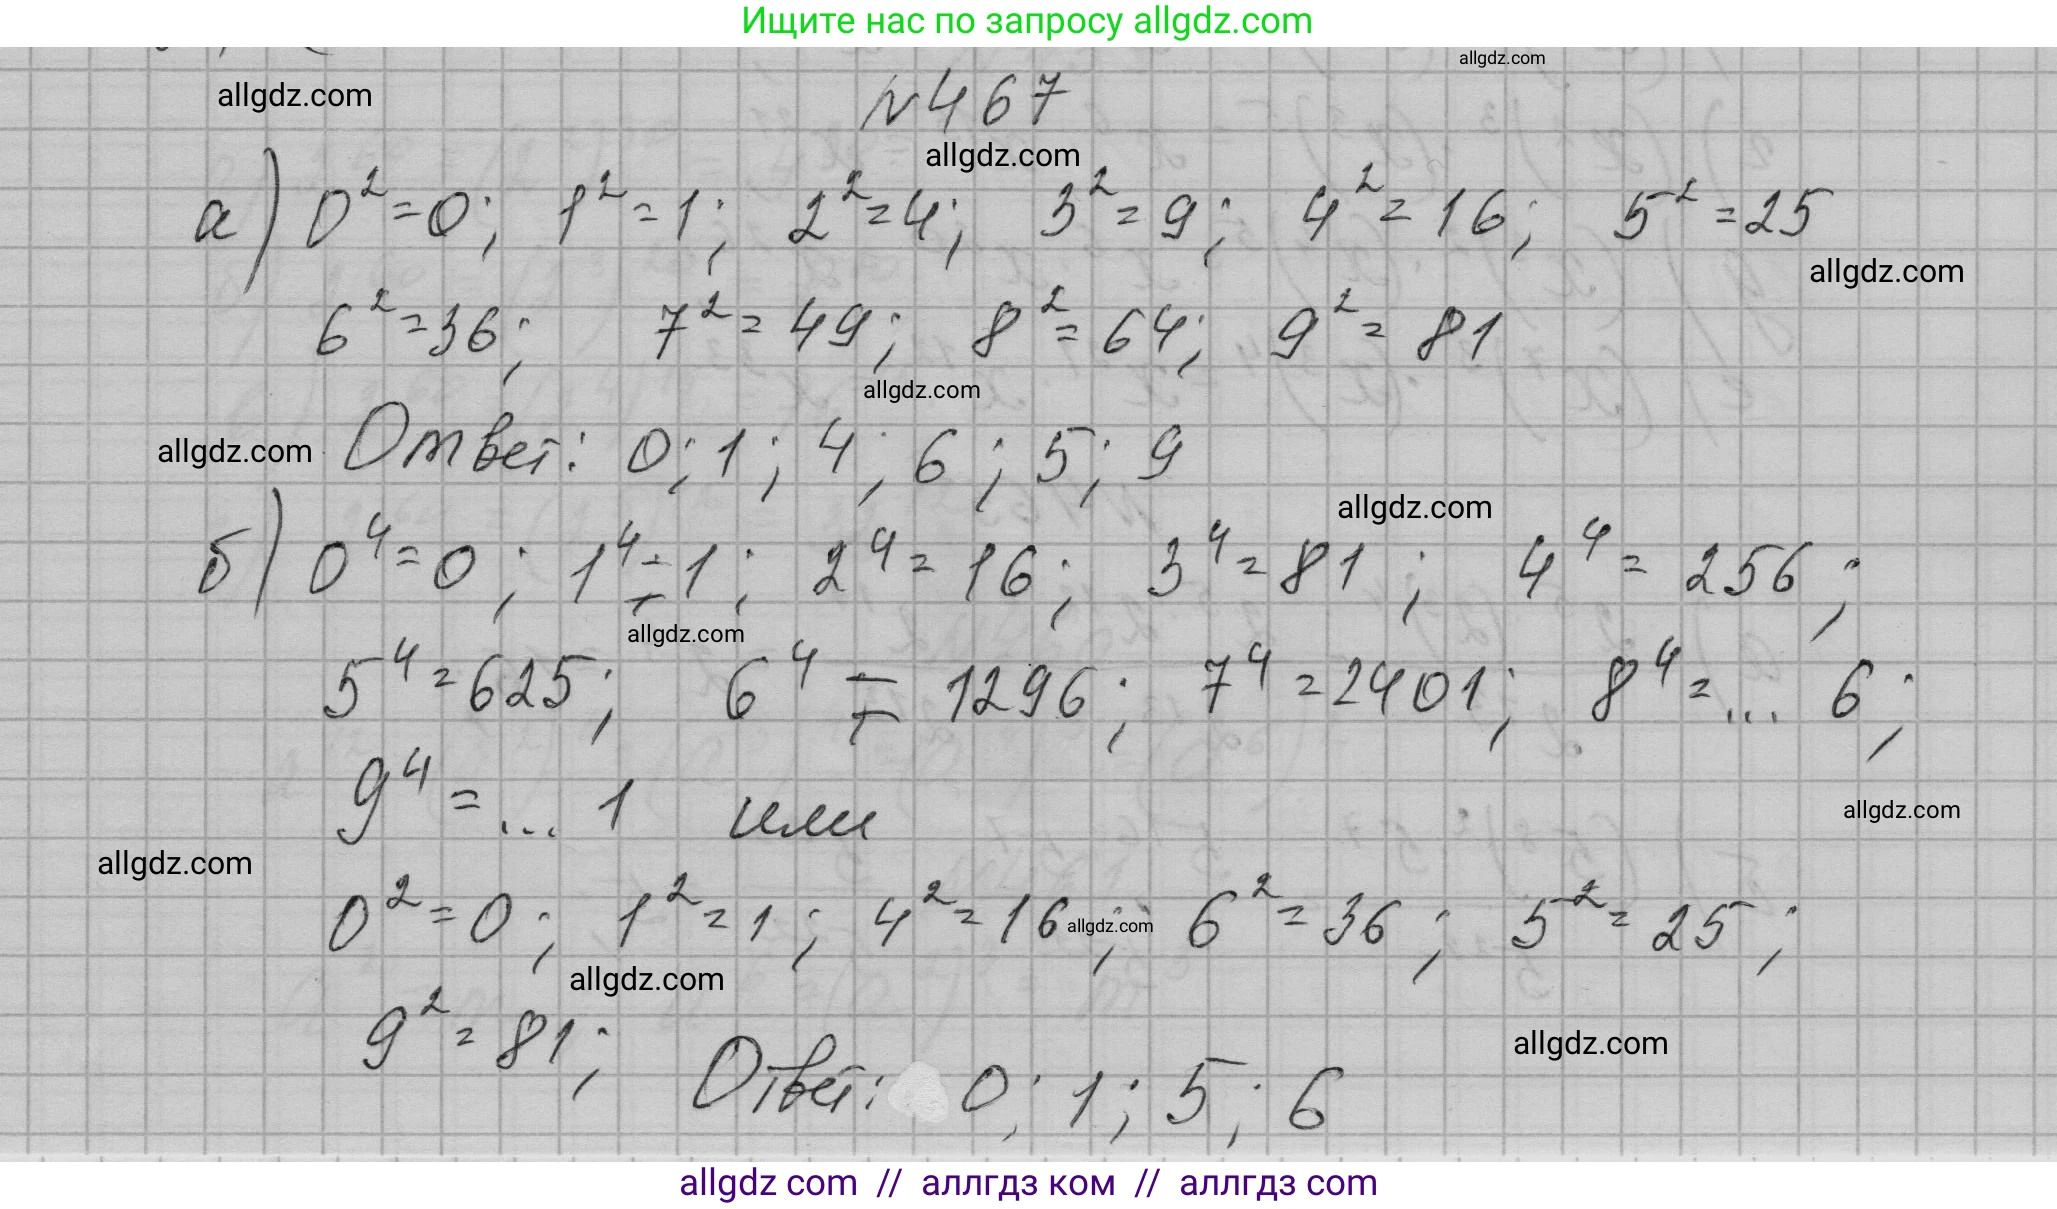 Ищите нас по запросу allgdz.com
allgdz.com
allgdz.com
N467
allgdz.com
а) 0²=0; 1²=1; 2²=4; 3²=9; 4²=16; 5²=25
allgdz.com
6²=36; 7²=49; 8²=64; 9²=81
allgdz.com
allgdz.com Ответ: 0; 1; 4; 6; 5; 9
allgdz.com
б) 0⁴=0; 1⁴=1; 2⁴=16; 3⁴=81; 4⁴=256;
allgdz.com
5⁴=625; 6⁴=1296; 7⁴=2401; 8⁴=... 6;
9⁴=... 1 или
allgdz.com
allgdz.com
0²=0; 1²=1; 4²=16; 6²=36; 5²=25;
allgdz.com
allgdz.com
9²=81; Ответ: 0; 1; 5; 6
allgdz.com
allgdz com // аллгдз ком // аллгдз com